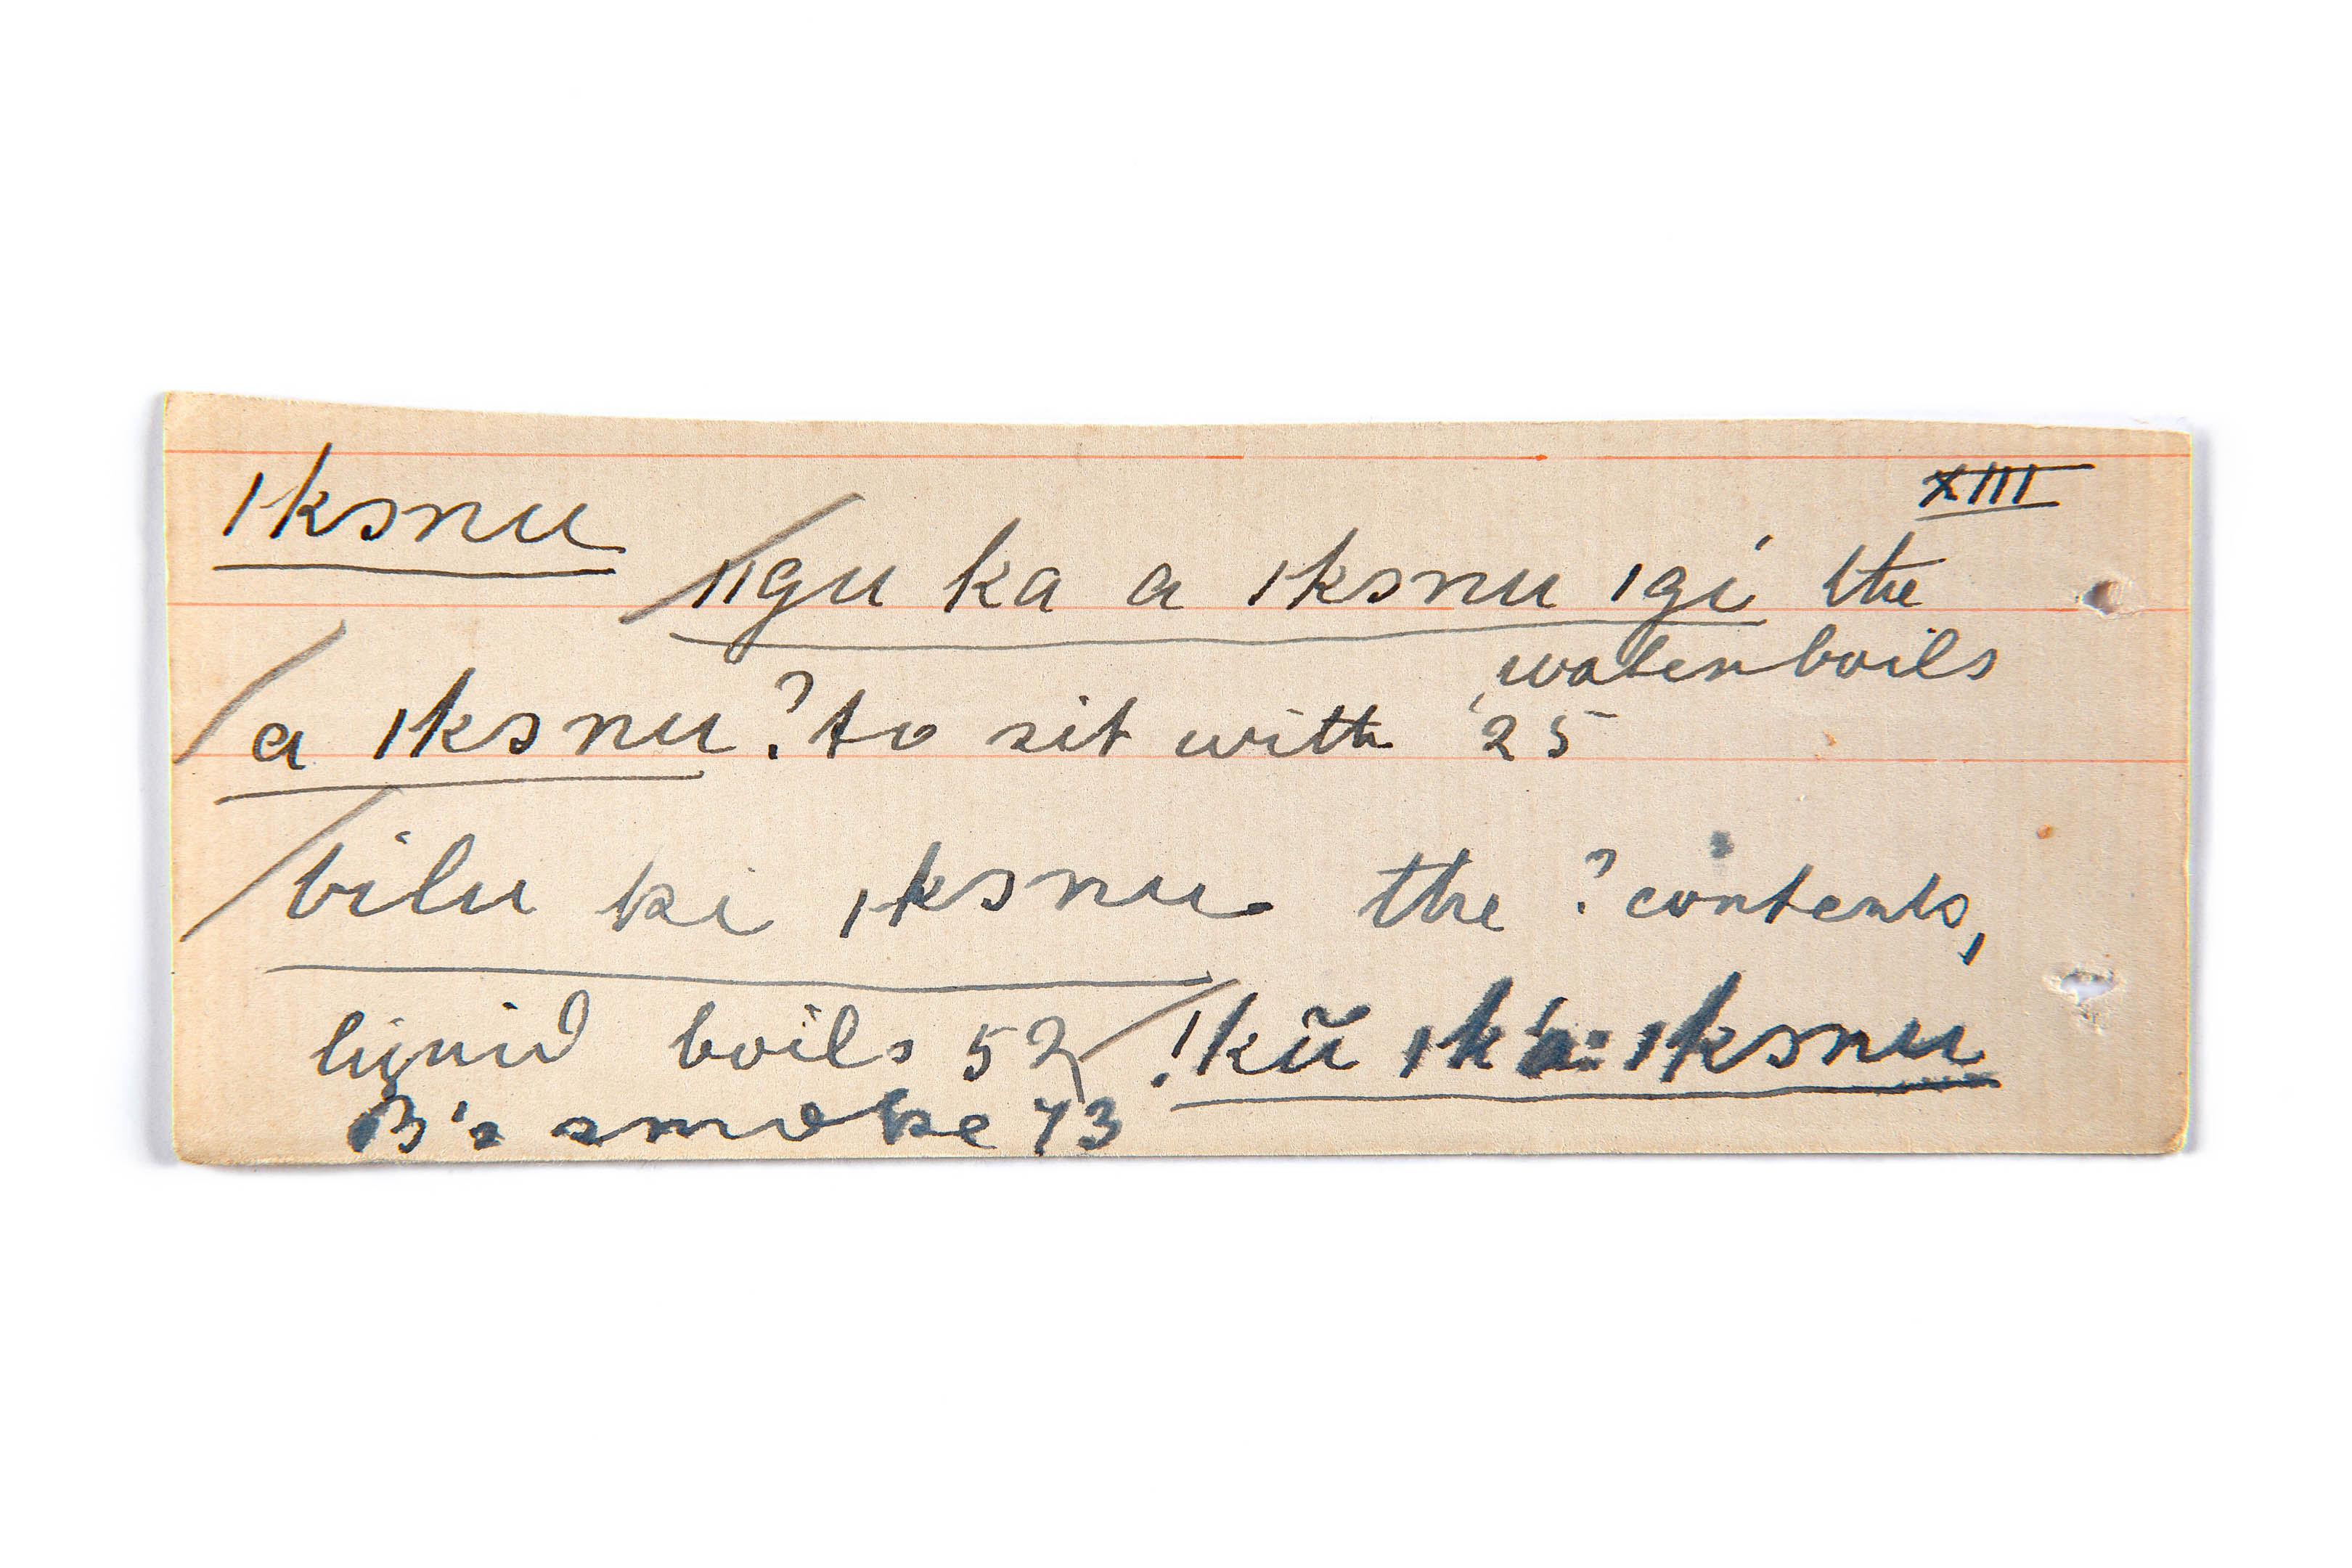 ǀksnu XIII
ǁgu ka a ǀksnu ǀgi the
water boils
a ǀksnu ? to sit with 25
bilu ki ǀksnu the ? contents,
liquid boils 52 !kũ ǀksnu
B's smoke 73